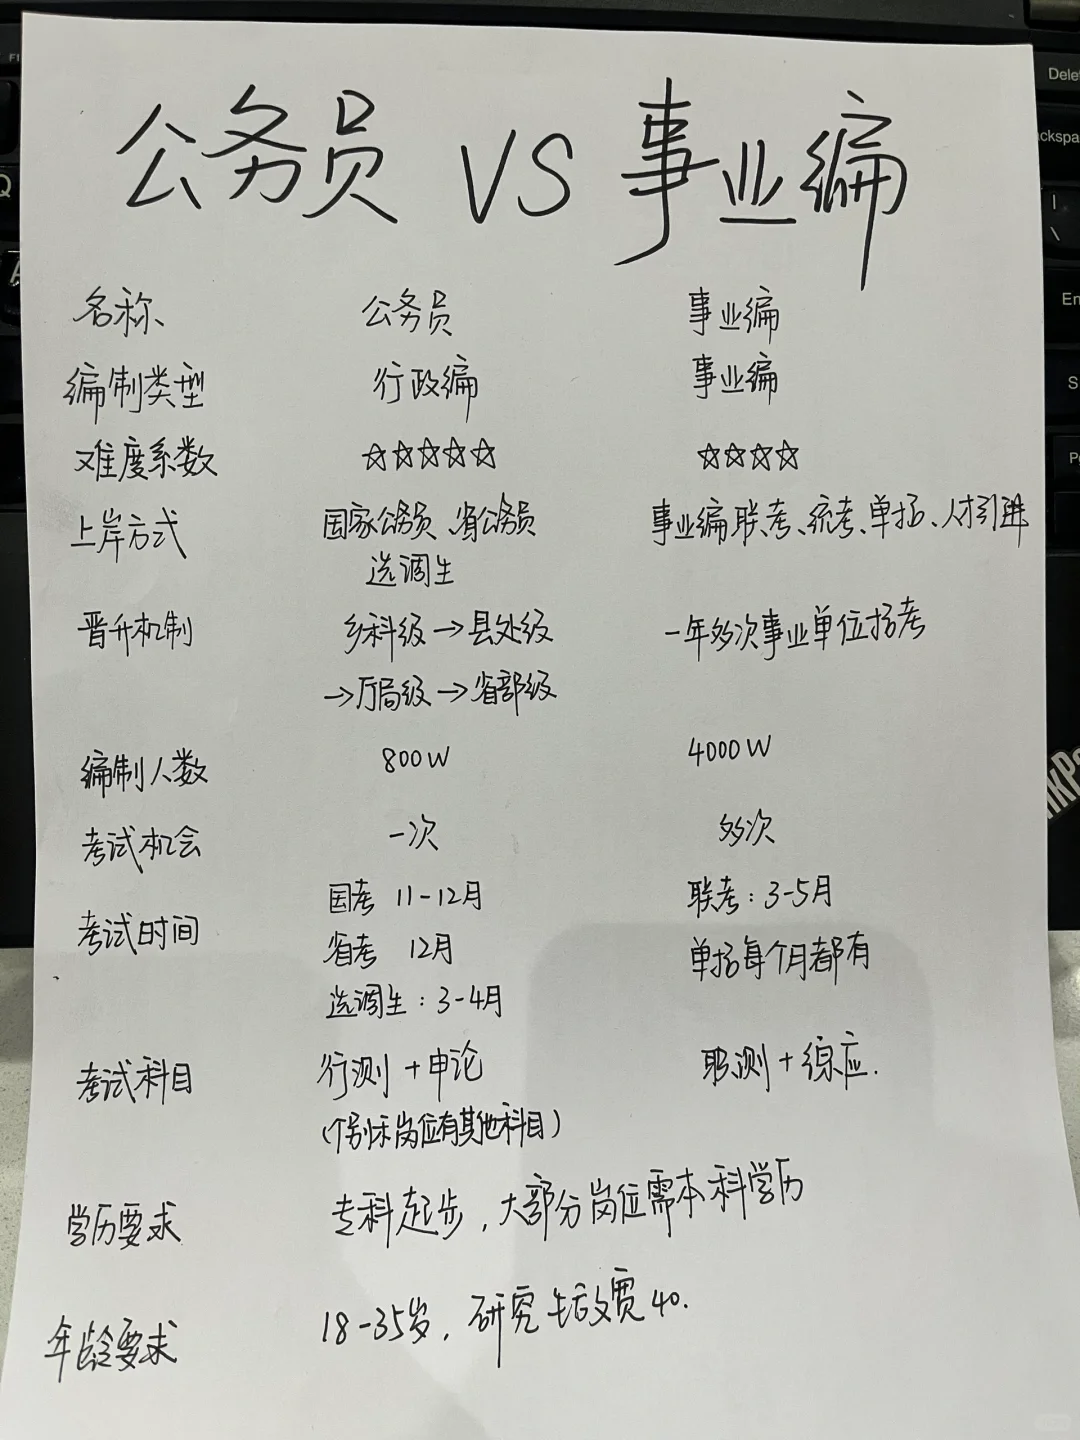 公务员 VS 事业编
名称、 公务员 事业编
编制类型 行政编 事业编
难度系数 ☆☆☆☆☆ ☆☆☆☆
上岸方式 国家公务员、省公务员 事业编联考、统考、单招、人才引进
选调生
晋升机制 乡科级→县处级 一年多次事业单位招考
→厅局级→省部级
编制人数 800W 4000W
考试机会 一次 多次
考试时间 国考 11-12月 联考：3-5月
省考 12月 单招每个月都有
选调生：3-4月
考试科目 行测+申论 职测+综应.
(个别岗位有其他科目)
学历要求 专科起步，大部分岗位需本科学历
年龄要求 18-35岁，研究生放宽40.
Q
Delete
Backspa
En
nkPa